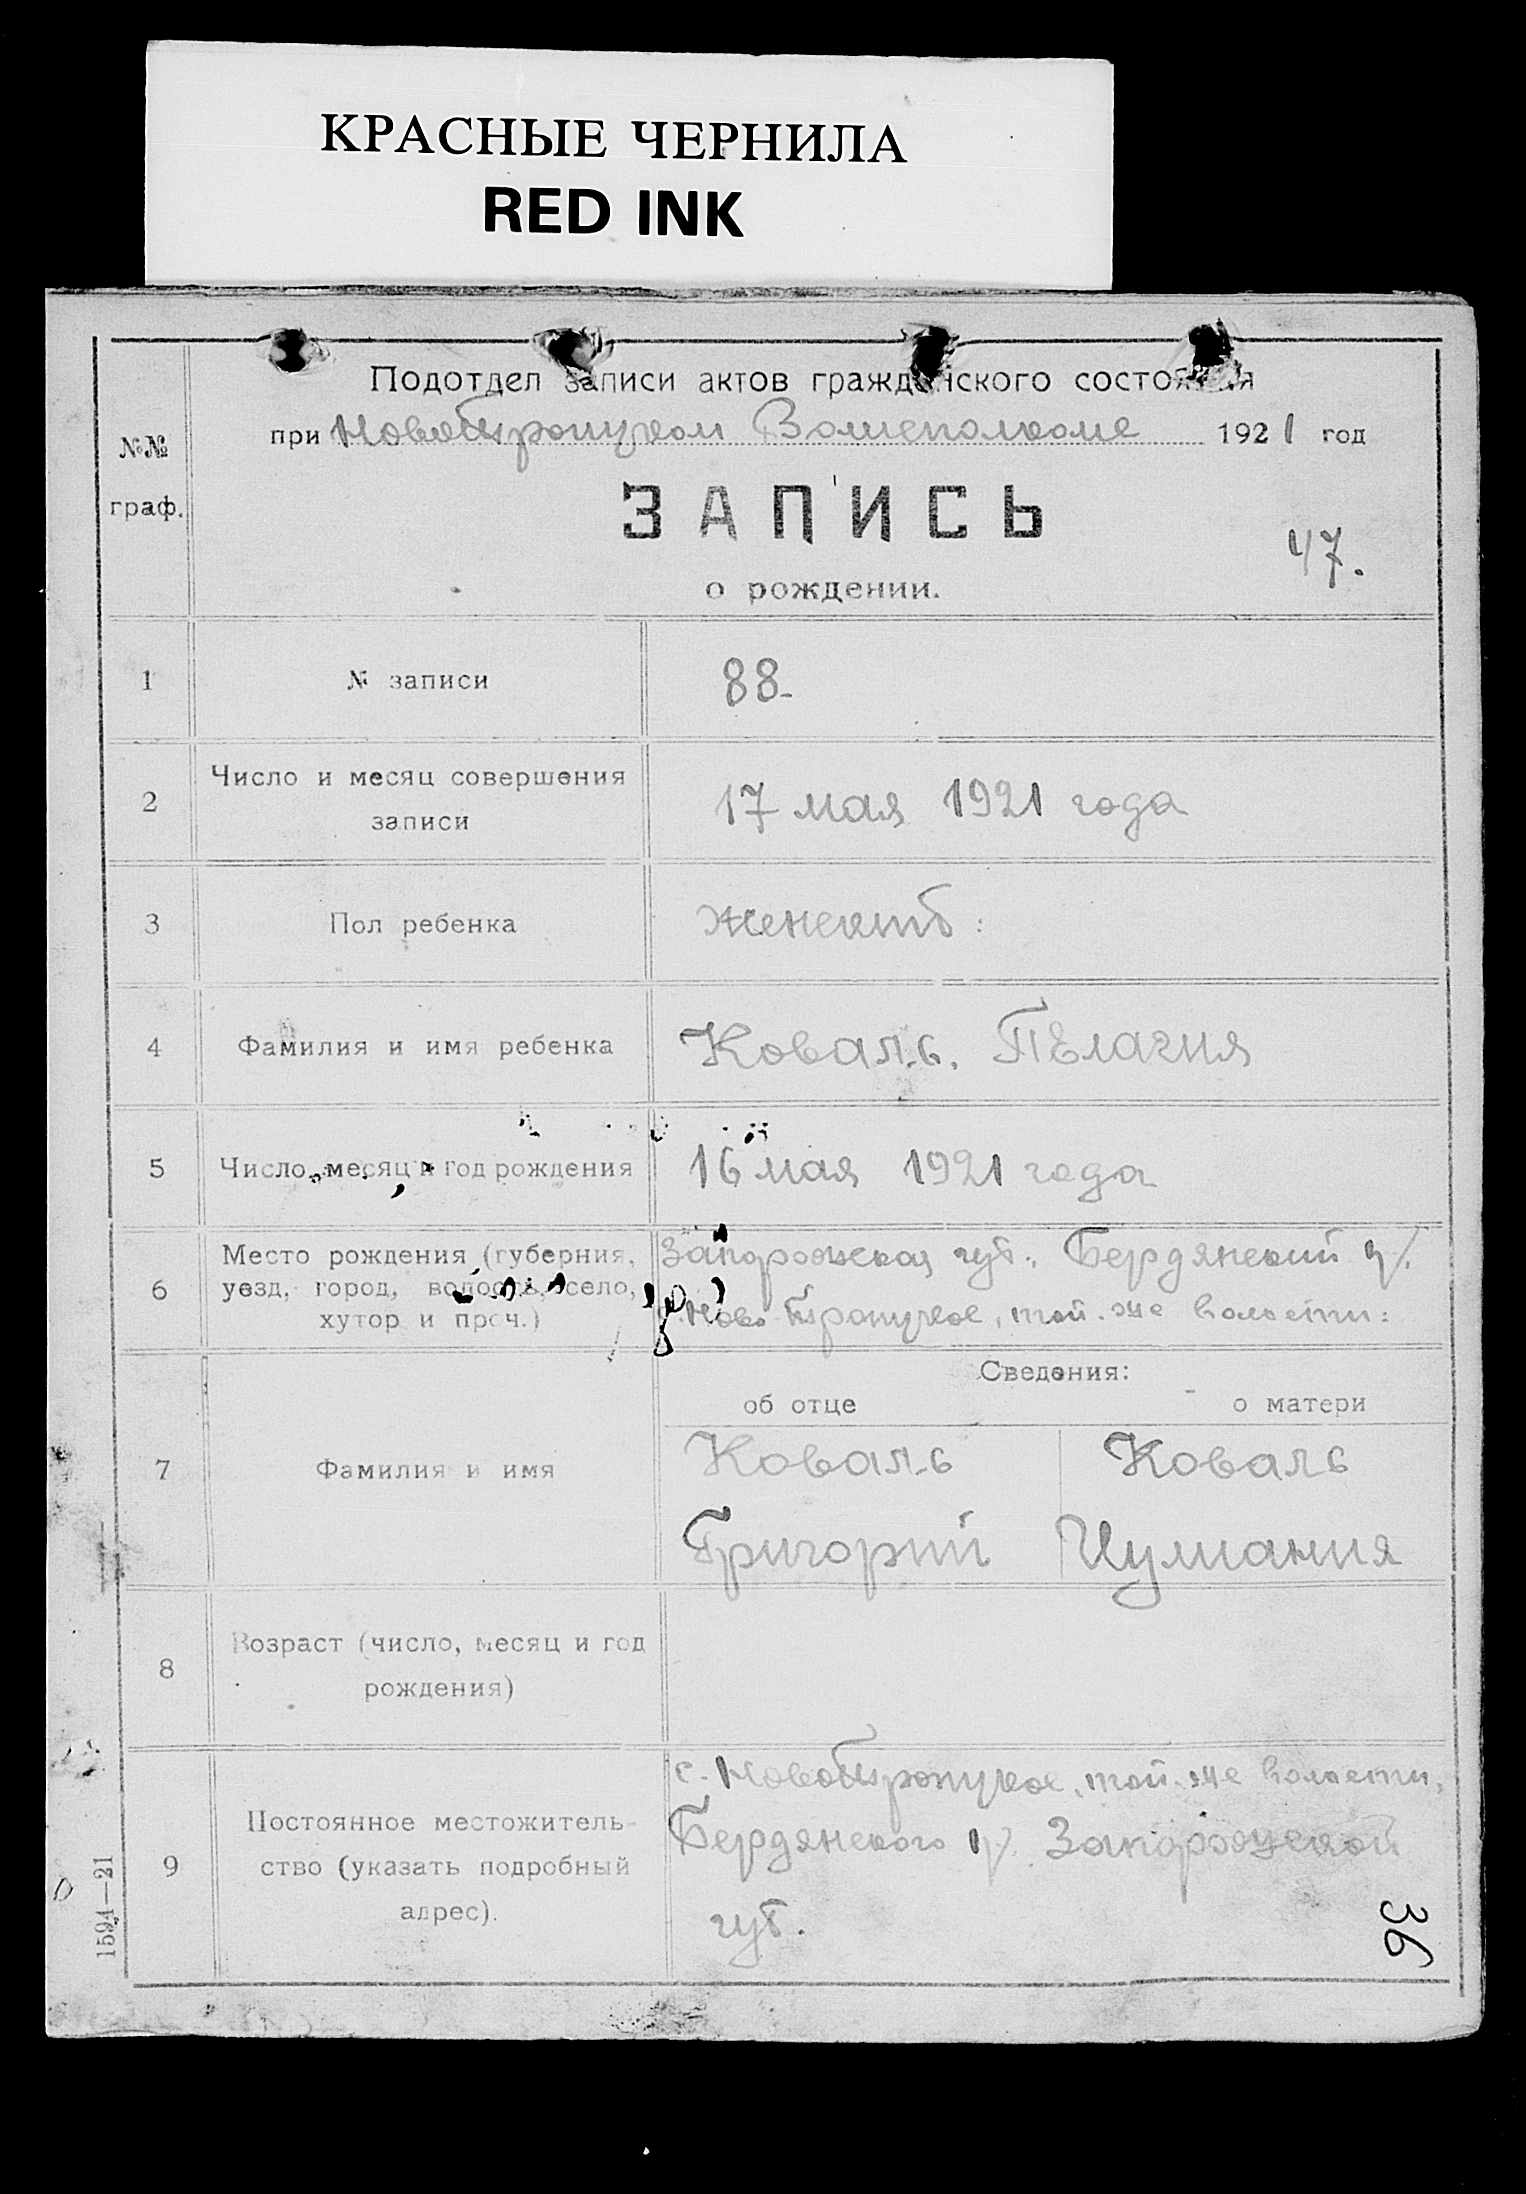 КРАСНЫЕ ЧЕРНИЛА
RED INK
Подотдел записи актов гражданского состояния
№№
граф.
при Волисполкоме 1921 год
ЗАПИСЬ
47.
о рождении.
1 № записи 88-
2 Число и месяц совершения
записи
17 мая 1921 года
3 Пол ребенка
4 Фамилия и имя ребенка Коваль. Пелагия
5 Число, месяц и год рождения 16 мая 1921 года
6 Место рождения (губерния,
уезд, город, волость, село,
хутор и проч.)
Запорожская губ., Бердянский у/.
той-же волости:
Сведения:
об отце о матери
7 Фамилия и имя
Коваль Коваль
Григорий
8 Возраст (число, месяц и год
рождения)
9 Постоянное местожитель-
ство (указать подробный
адрес).
с. той-же волости,
Бердянского у/. Запорожской
губ.
36
1594—21